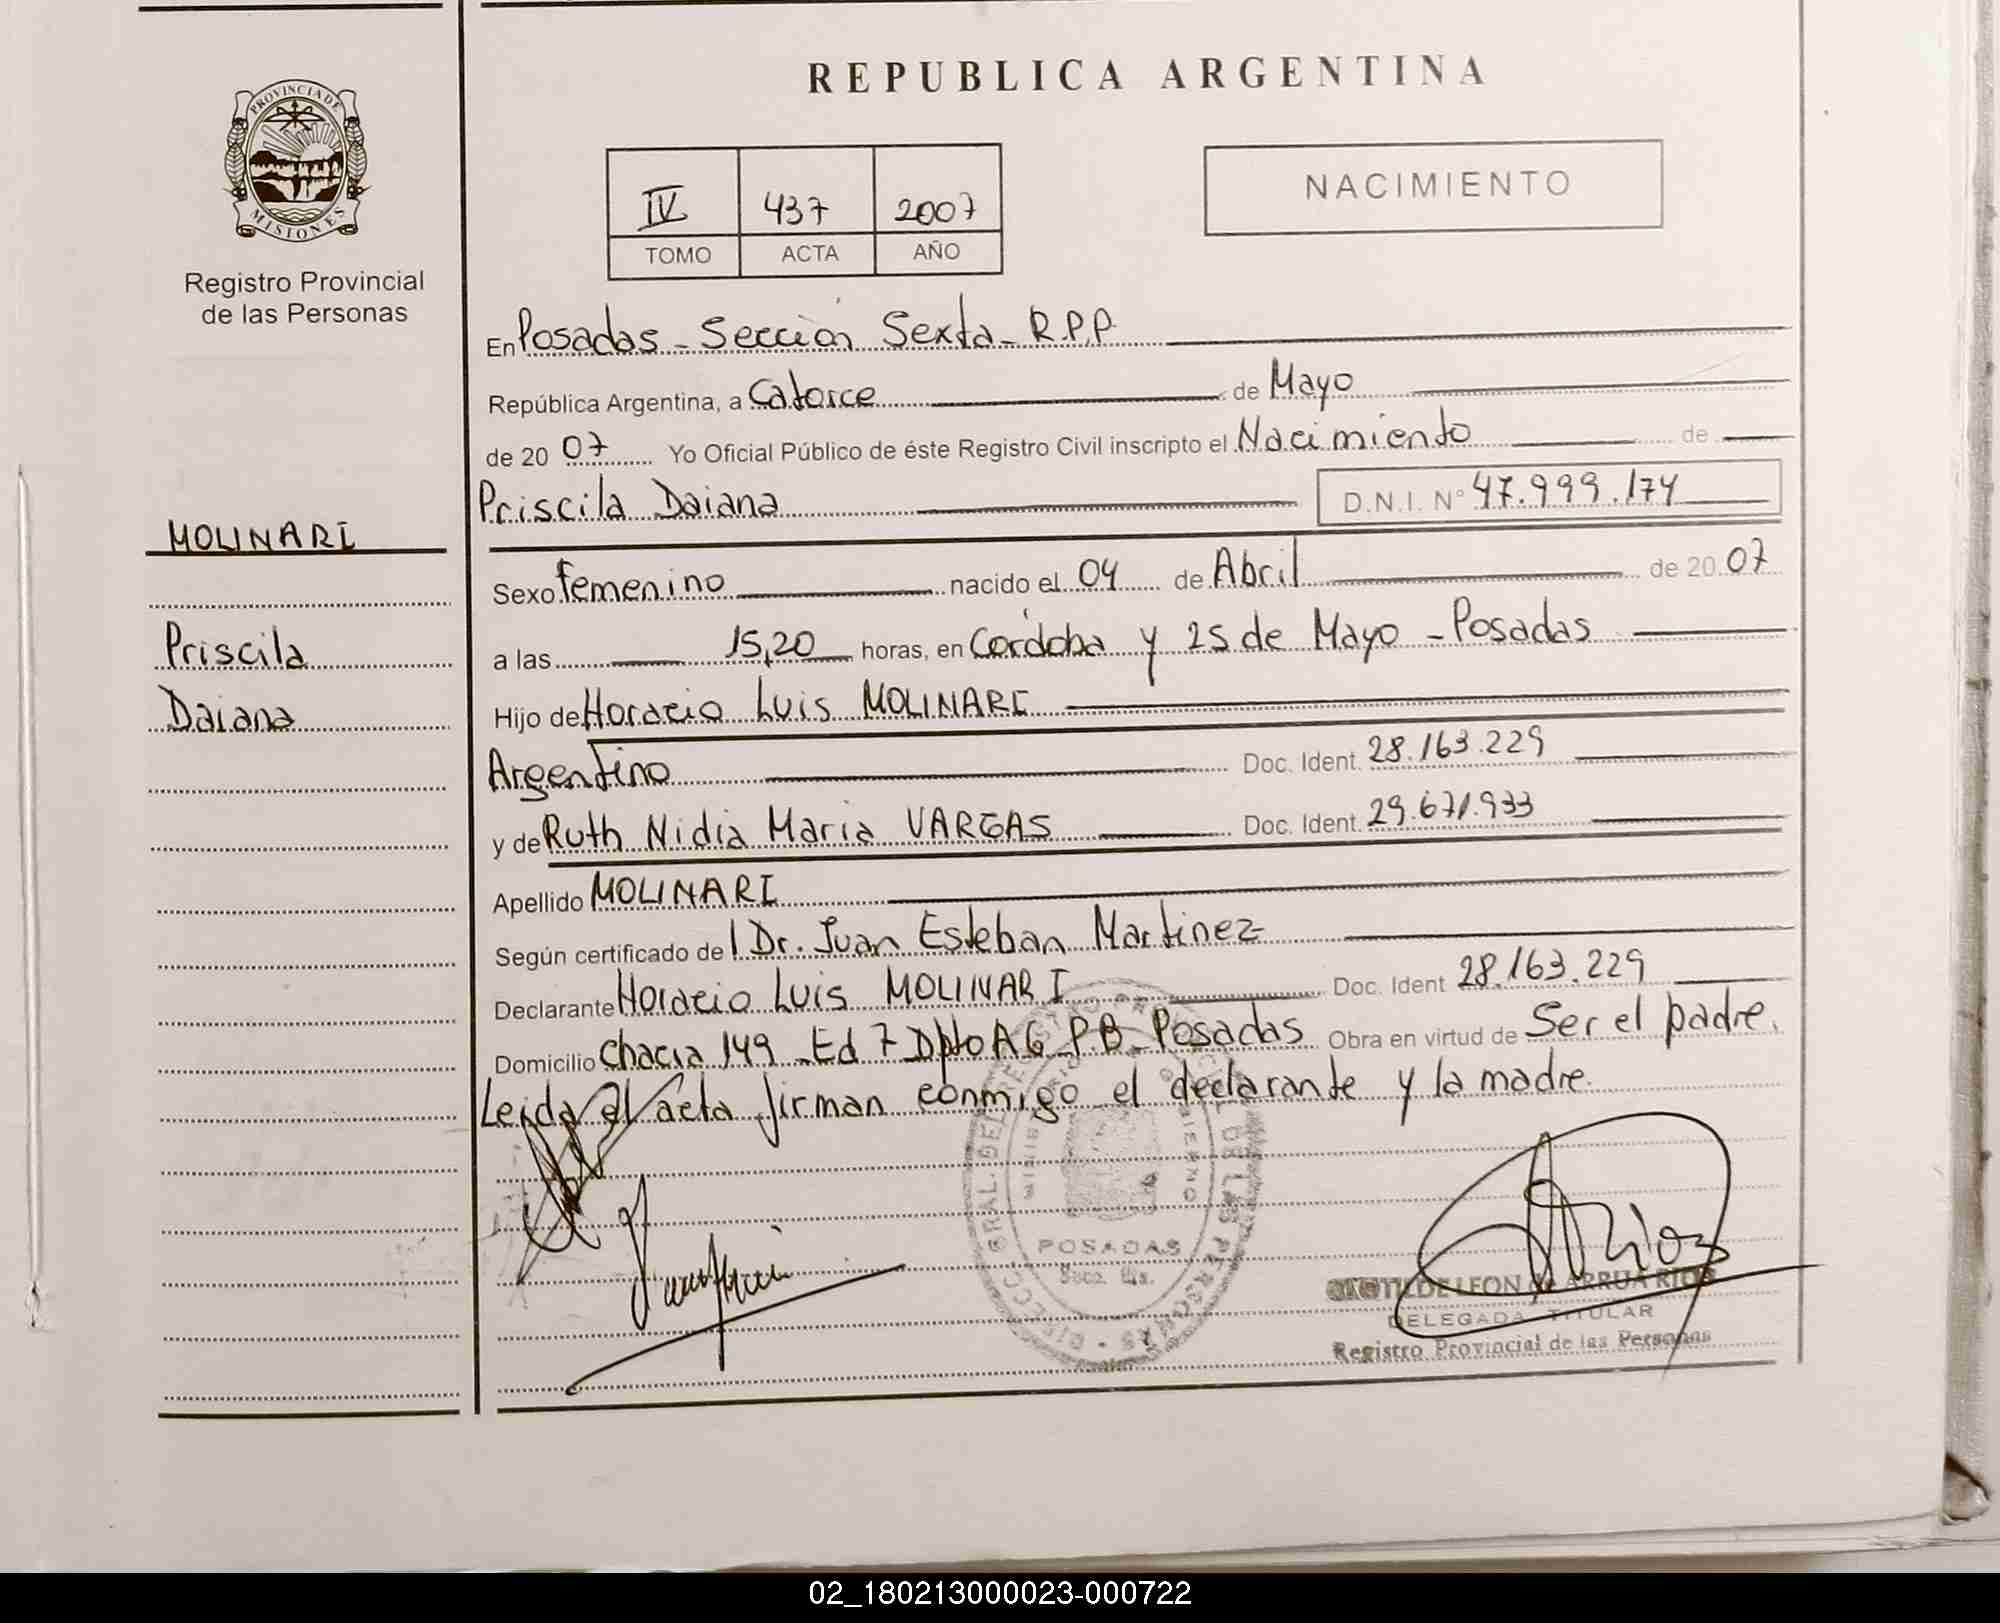 PROVINCIA DE
MISIONES
Registro Provincial
de las Personas
MOLINARI
Priscila
Daiana
REPUBLICA ARGENTINA
IV 437 2007
TOMO ACTA AÑO
NACIMIENTO
En Posadas - Sección Sexta - R.P.P.
República Argentina, a Catorce de Mayo
de 20 07 Yo Oficial Público de éste Registro Civil inscripto el Nacimiento de
Priscila Daiana D.N.I. Nº 47.999.174
Sexo femenino nacido el 04 de Abril de 20 07
a las 15,20 horas, en Córdoba y 25 de Mayo - Posadas
Hijo de Horacio Luis MOLINARI
Argentino Doc. Ident. 28.163.229
y de Ruth Nidia Maria VARGAS Doc. Ident. 29.671.933
Apellido MOLINARI
Según certificado de l Dr. Juan Esteban Martinez
Declarante Horacio Luis MOLINARI Doc. Ident 28.163.229
Domicilio Chacra 149 - Ed 7 Dpto A6 P.B - Posadas Obra en virtud de Ser el padre.
Leida el acta firman conmigo el declarante y la madre.
POSADAS
DE LEON de ARRUA RIOS
DELEGADA TITULAR
Registro Provincial de las Personas
02_180213000023-000722